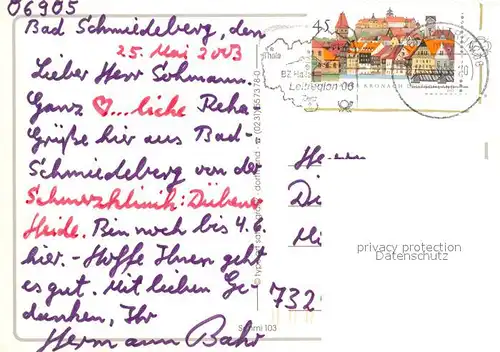 06905
Bad Schmiedeberg, den
25. Mai 2003
Lieber Herr Sohmann.
Ganz ♡...liche Reha-
Grüße hier aus Bad-
Schmiedeberg von der
Schmerzklinik: Dübener
Heide. Bin noch bis 4.6.
hier. - Hoffe Ihnen geht
es gut. Mit lieben Ge-
danken, Ihr
Hermann Bahr
45
Thale
BZ Halle
Leitregion 06
KRONACH
He
Di
Mi
732
privacy protection
Datenschutz